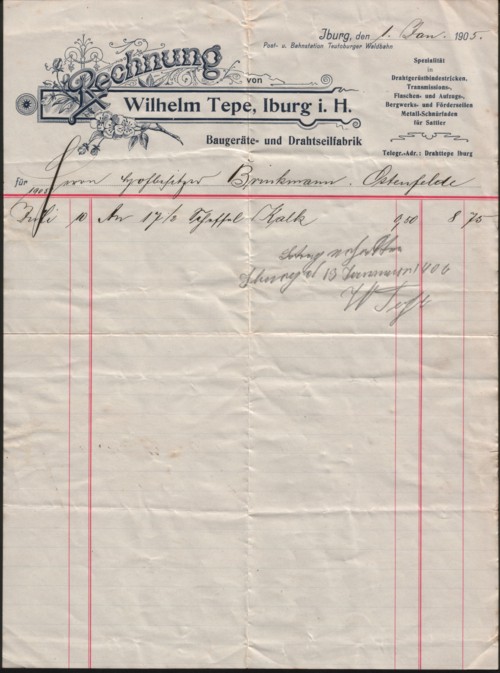 Iburg, den 1. Jan. 1905.
Post- u. Bahnstation Teutoburger Waldbahn
Rechnung
von
Wilhelm Tepe, Iburg i. H.
Baugeräte- und Drahtseilfabrik
Spezialität
in
Drahtgerüstbindestricken,
Transmissions-,
Flaschen- und Aufzugs-,
Bergwerks- und Förderseilen
Metall-Schnürfaden
für Sattler
Telegr.-Adr.: Drahttepe Iburg
für Herrn Hofbesitzer Brinkmann. Ostenfelde
1905
Juli 10 An 17 1/2 Scheffel Kalk 8 75
13 Januar 1906
W Tepe